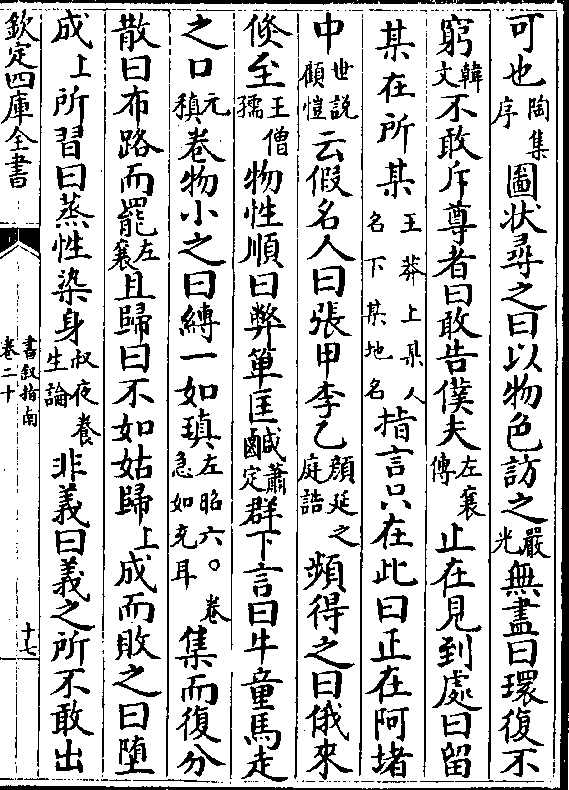 可也陶集序圖状尋之曰以物色訪之嚴光無盡曰環復不
窮韓文不敢斥尊者曰敢告僕夫左襄傳止在見到處曰留
某在所某王莽上某人名下某地名指言只在此曰正在阿堵
中世説顧愷云假名人曰張甲李乙顔延之庭誥頻得之曰俄來
倐至王僧孺物性順曰弊箪匡鹹蕭咸定群下言曰牛童馬走
之口元稹卷物小之曰縛一如瑱左昭六。卷急如充耳集而復分
散曰布路而罷左襄且歸曰不如姑歸上成而敗之曰堕
成上所習曰蒸性染身叔夜養生論非義曰義之所不敢出
欽定四庫全書
書叙指南
卷二十
十七